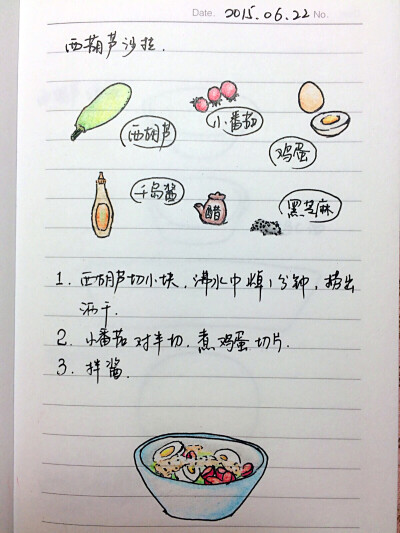 Date. 2015.06.22 No.
西葫芦沙拉.
西葫芦
小番茄
鸡蛋
千岛酱
醋
黑芝麻
1. 西葫芦切小块, 沸水中焯1分钟, 捞出
沥干.
2. 小番茄对半切. 煮鸡蛋切片.
3. 拌酱.